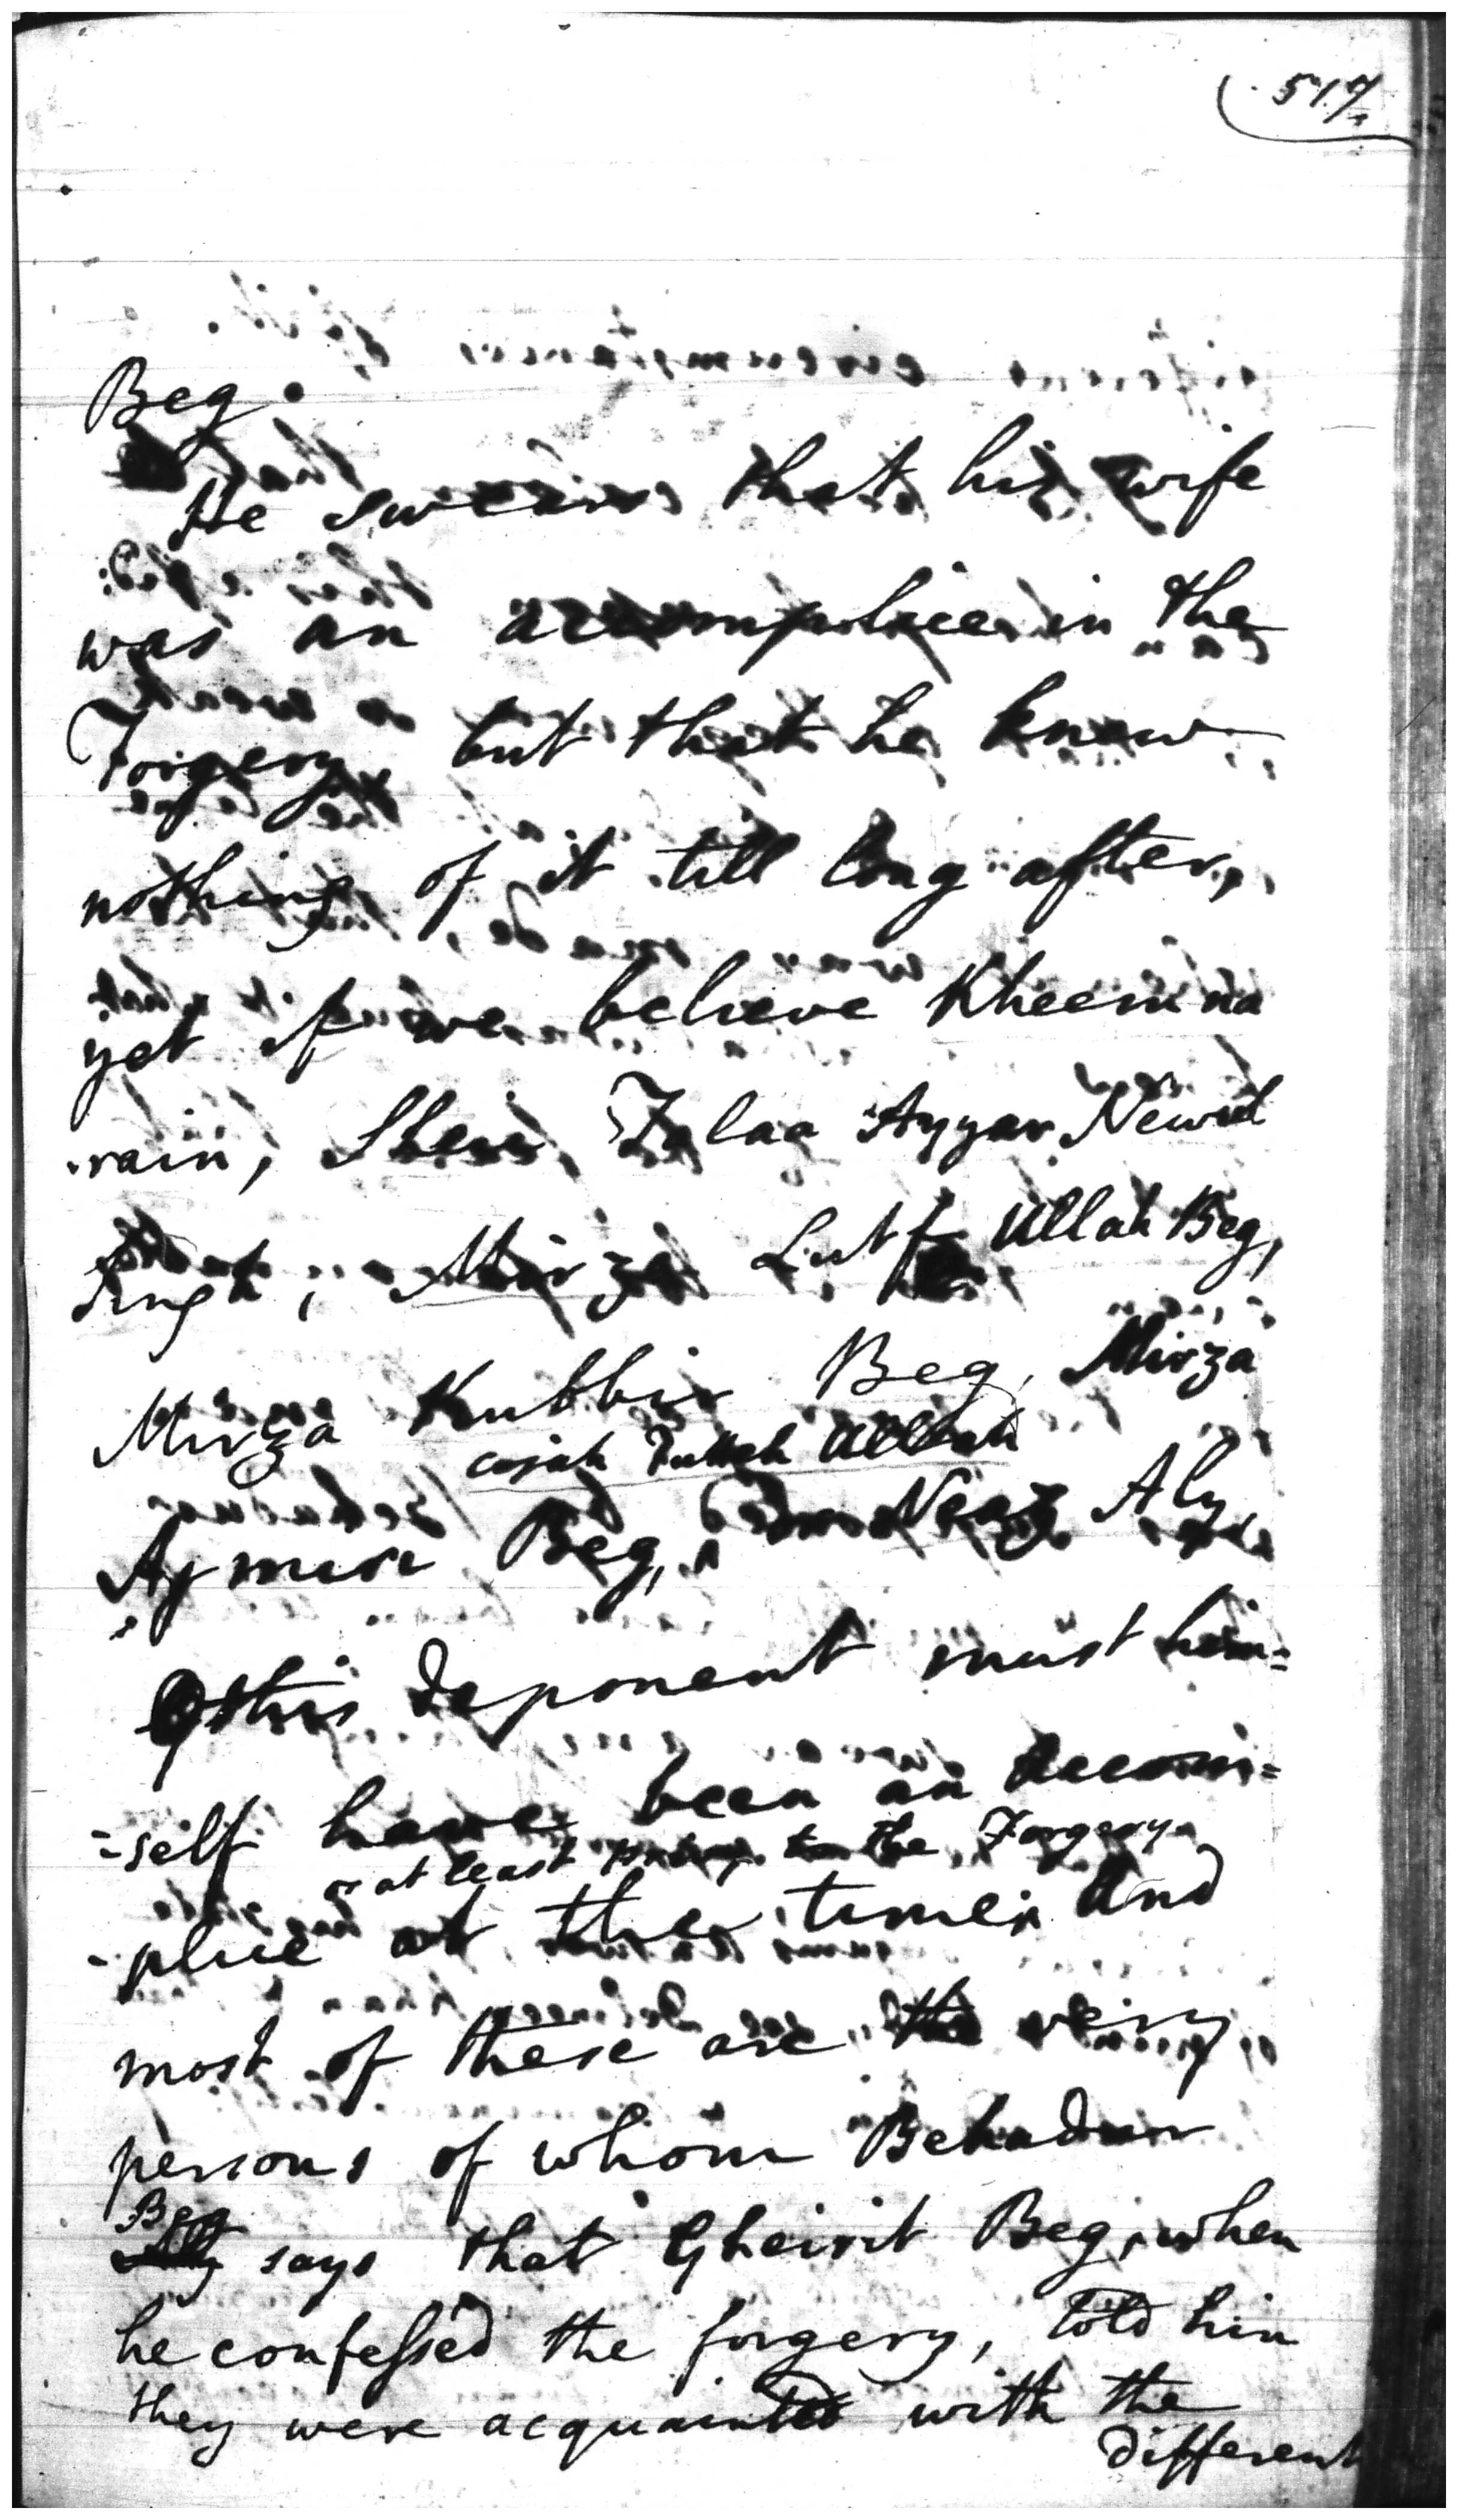 517
Beg.
He swears that his wife
was an accomplice in the
Forgery, but that he knew
nothing of it till long after,
yet if we believe Kheem na
rain, Sheir, Talaa Ayyar Newul
Singh, Mirza Lutf Ullah Beg,
Mirza Kubbir Beg, Mirza
cojah Futteh Ullah
Beg, Neaz Aly
this deponent must him=
=self have been an Accom=
or at least privy to the Forgery
-plice at the time. And
most of these are the very
persons of whom Behadur
Beg
says that Gheirit Beg, when
he confessed the forgery, told him
they were acquainted with the
different